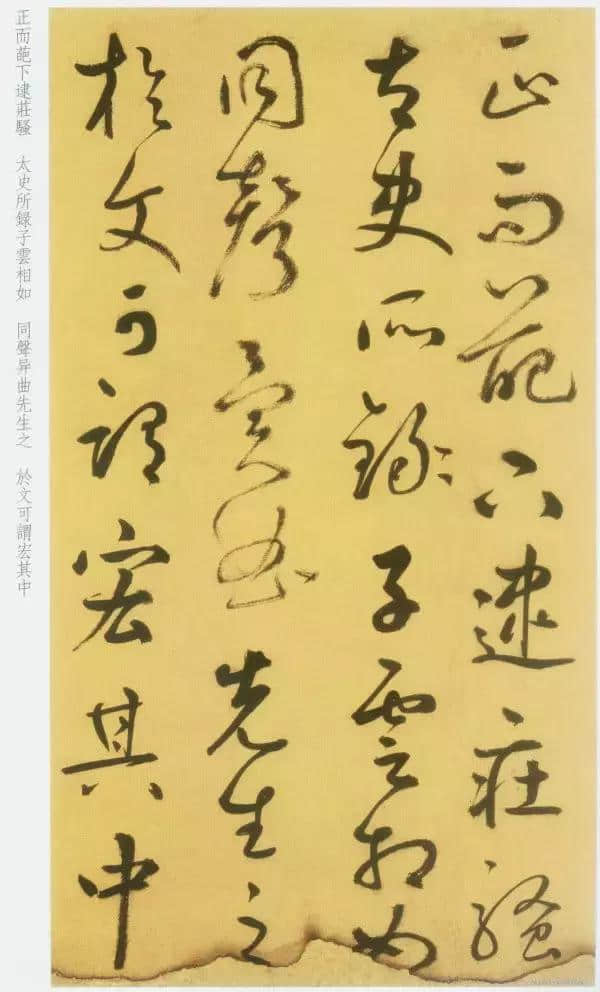 正而葩下逮莊騷
太史所録子雲相如
同聲異曲先生之
於文可謂宏其中
正而葩下逮莊騷　太史所録子雲相如　同聲异曲先生之　於文可謂宏其中